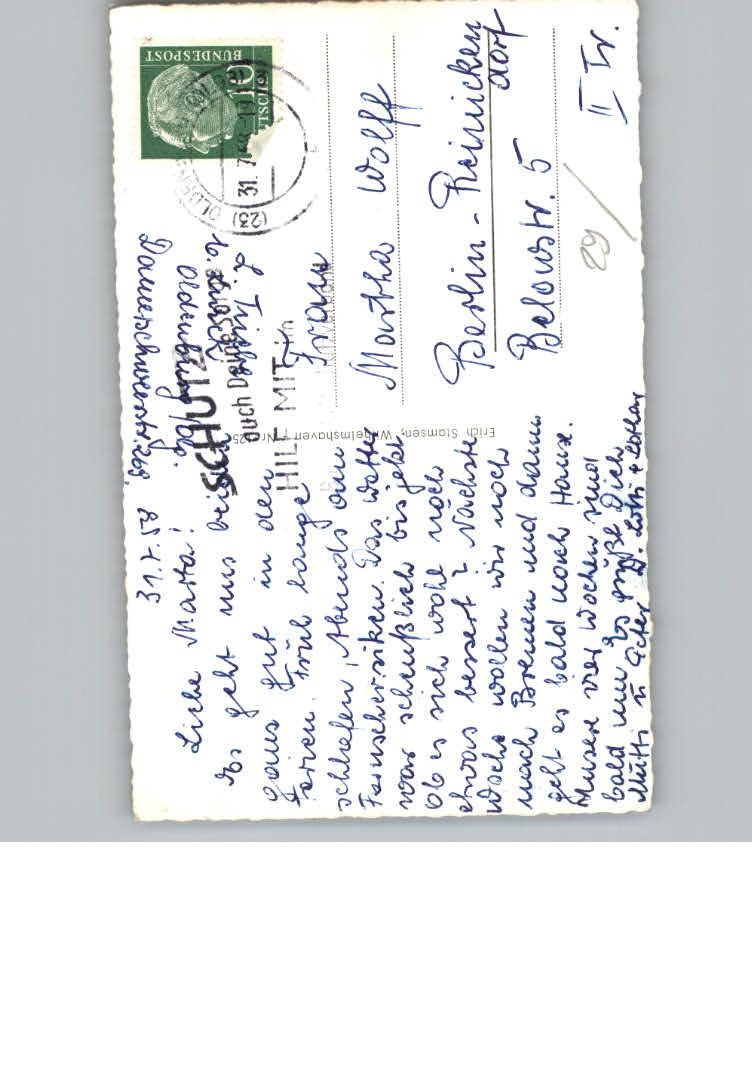 31.7.58
Liebe Marta!
Es geht uns beiden
ganz gut in den
Ferien. Früh lange
schlafen, Abends am
Fernseher sitzen. Das Wetter
war scheußlich bis jetzt
ob es sich wohl noch
etwas bessert? Nächste
Woche wollen wir noch
nach Bremen und dann
geht es bald nach Hause.
Unsere vier Wochen sind
bald um. Es grüßt Dich
Mutti u. Lotti & Lothar
Oldenburg
BUNDESPOST
10
(23) OLDENBURG
31.7.58
SCHÜTZ
auch Deine
HILF MIT
Frau
Martha Wolff
Berlin - Reinicken
dorf
Belowstr. 5
II Tr.
29
Erich Stamsen, Wilhelmshaven